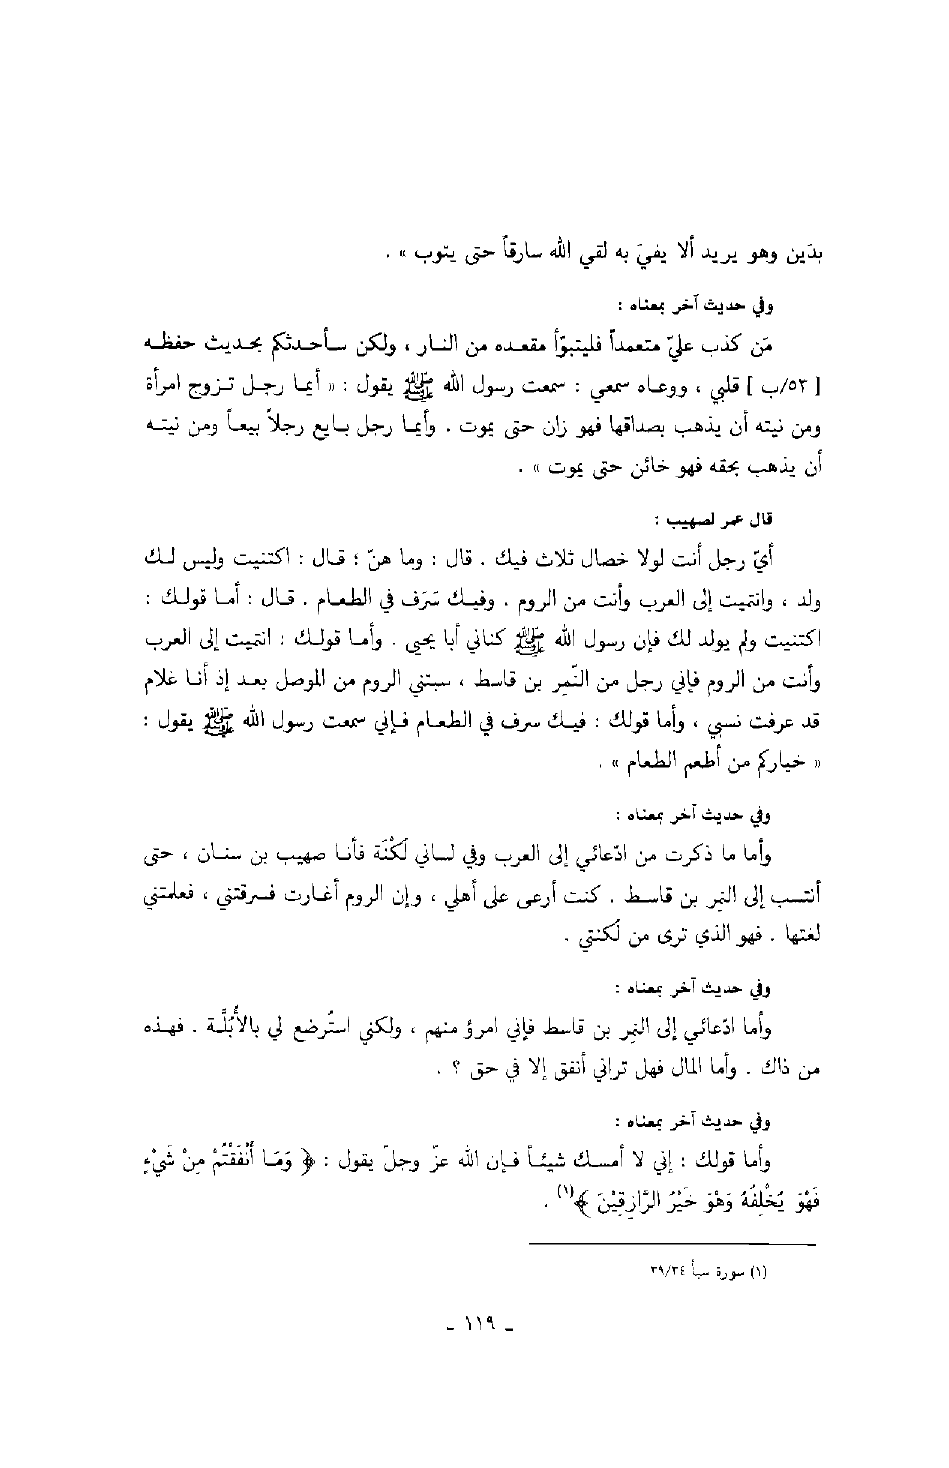 بدَين وهو يريد ألا يفيَ به لقي الله سارقاً حتى يتوب » .
وفي حديث آخر بمعناه :
مَن كذب عليّ متعمداً فليتبوّأ مقعده من النار ، ولكن سأحدثكم بحديث حفظه
[ ٥٢/ب ] قلبي ، ووعاه سمعي : سمعت رسول الله ﷺ يقول : « أيما رجل تزوج امرأة
ومن نيته أن يذهب بصداقها فهو زان حتى يموت . وأيما رجل بايع رجلاً بيعاً ومن نيته
أن يذهب بحقه فهو خائن حتى يموت » .
قال عمر لصهيب :
أيّ رجل أنت لولا خصال ثلاث فيك . قال : وما هنّ ؟ قال : اكتنيت وليس لك
ولد ، وانتميت إلى العرب وأنت من الروم . وفيك سَرَف في الطعام . قال : أما قولك :
اكتنيت ولم يولد لك فإن رسول الله ﷺ كناني أبا يحيى . وأما قولك : انتميت إلى العرب
وأنت من الروم فإني رجل من النَّمِر بن قاسط ، سبتني الروم من الموصل بعد إذ أنا غلام
قد عرفت نسبي ، وأما قولك : فيك سرف في الطعام فإني سمعت رسول الله ﷺ يقول :
« خياركم من أطعم الطعام » .
وفي حديث آخر بمعناه :
وأما ما ذكرت من ادّعائي إلى العرب وفي لساني لُكْنَة فأنا صهيب بن سنان ، حتى
أنتسب إلى النمِر بن قاسط . كنت أرعى على أهلي ، وإن الروم أغارت فسرقتني ، فعلمتني
لغتها . فهو الذي ترى من لُكنتي .
وفي حديث آخر بمعناه :
وأما ادّعائي إلى النمِر بن قاسط فإني امرؤ منهم ، ولكني استُرضع لي بالأُبُلَّة . فهذه
من ذاك . وأما المال فهل تراني أنفق إلا في حق ؟ .
وفي حديث آخر بمعناه :
وأما قولك : إني لا أمسك شيئاً فإن الله عزّ وجلّ يقول : ﴿ وَمَا أَنْفَقْتُمْ مِنْ شَيْءٍ
فَهُوَ يُخْلِفُهُ وَهُوَ خَيْرُ الرَّازِقِيْنَ ﴾(١) .
(١) سورة سبأ ٣٩/٣٤
ـ ١١٩ ـ